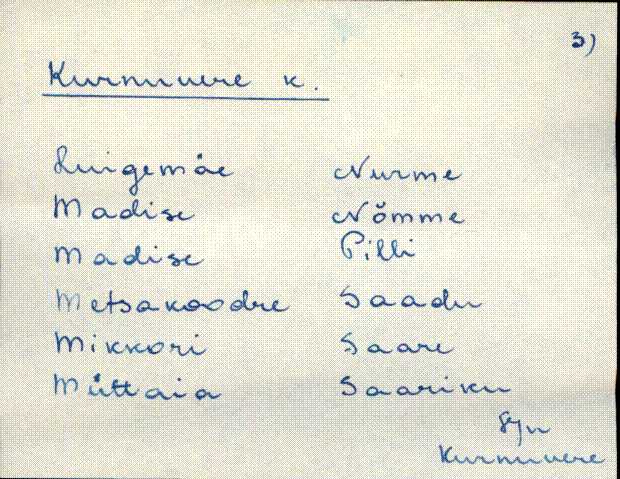 3)
Kurmuvere k.
Luigemäe Nurme
Madise Nõmme
Madise Pilli
Metsakoodre Saadu
Mikkori Saare
Müttaia Saariku
Kurmuvere